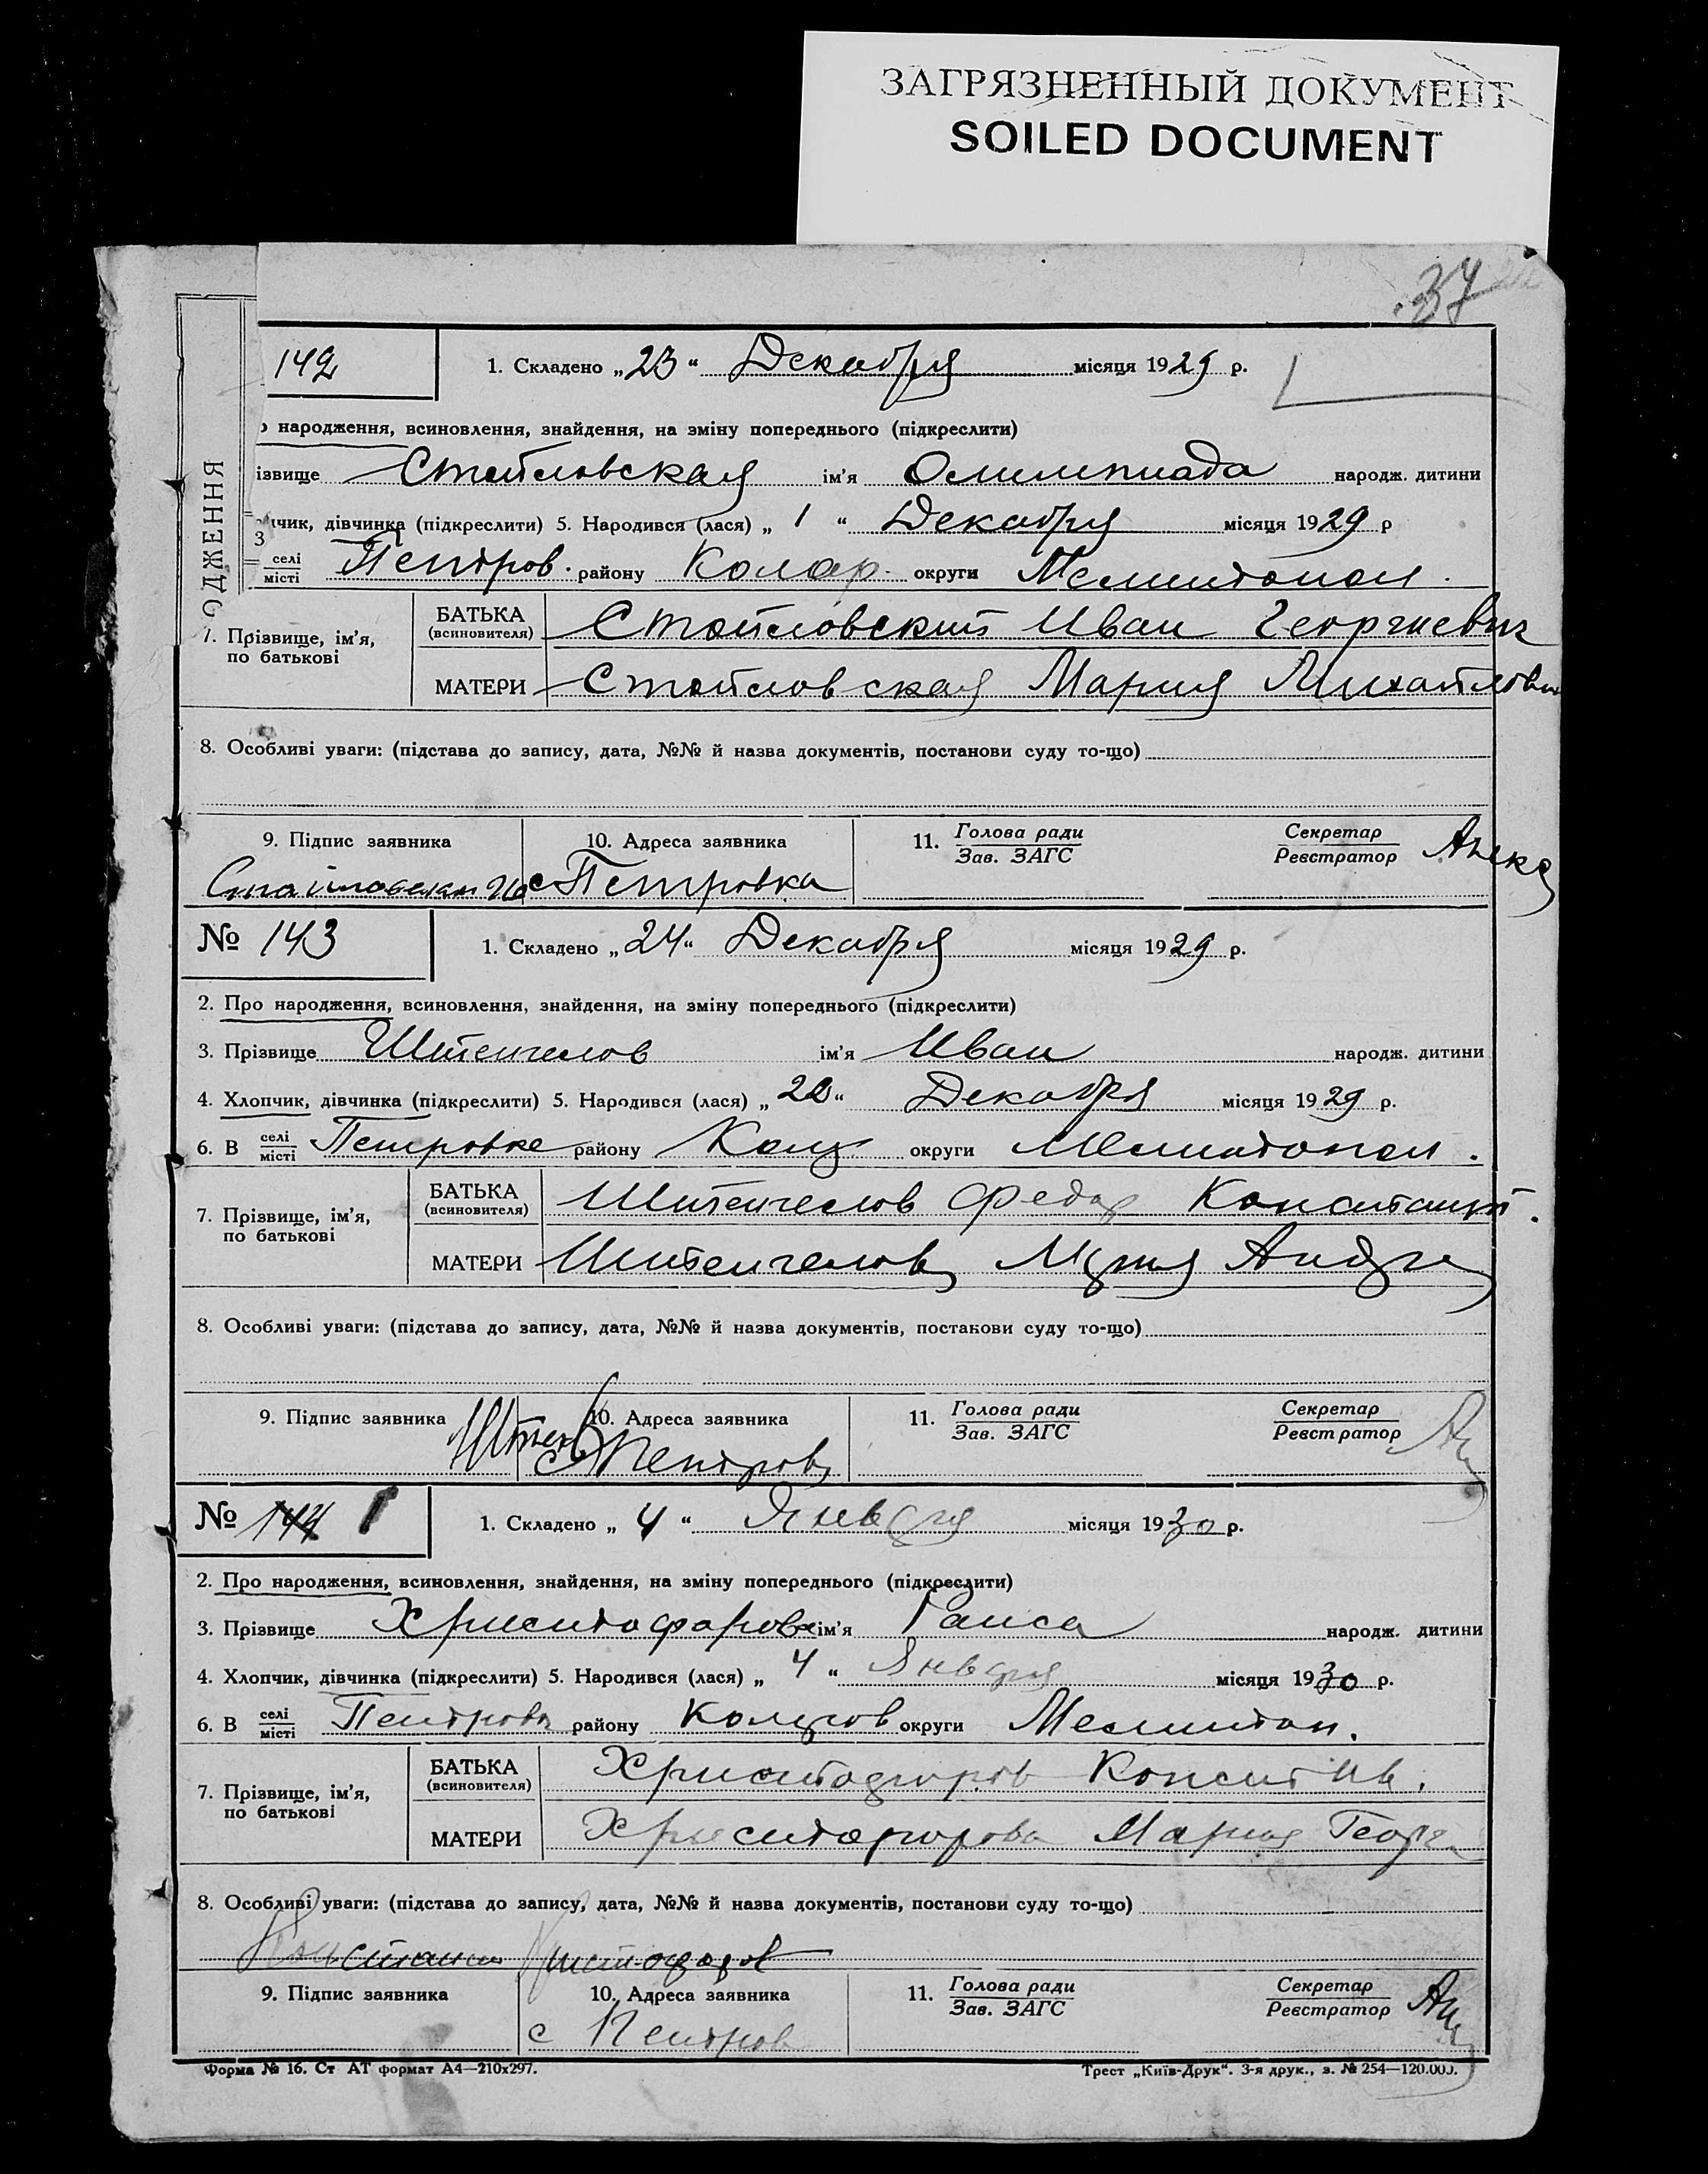 ЗАГРЯЗНЕННЫЙ ДОКУМЕНТ
SOILED DOCUMENT
37
ОДЖЕННЯ
142
1. Складено „ 23 “ Декабря місяця 1929 р.
о народження, всиновлення, знайдення, на зміну попереднього (підкреслити)
ізвище Стойловская ім'я Олимпиада народж. дитини
чик, дівчинка (підкреслити) 5. Народився (лася) „ 1 “ Декабря місяця 1929 р
селі
місті Петров. району Колар. округи Мелитопол.
7. Прізвище, ім'я, по батькові
БАТЬКА (всиновителя) Стойловский Иван Георгиевич
МАТЕРИ Стойловская Мария Михайловн
8. Особливі уваги: (підстава до запису, дата, №№ й назва документів, постанови суду то-що)
9. Підпис заявника 10. Адреса заявника 11. Голова ради Секретар
Зав. ЗАГС Реєстратор
с Петровка
№ 143 1. Складено „ 24 “ Декабря місяця 1929 р.
2. Про народження, всиновлення, знайдення, на зміну попереднього (підкреслити)
3. Прізвище Штенгелов ім'я Иван народж. дитини
4. Хлопчик, дівчинка (підкреслити) 5. Народився (лася) „ 22 “ Декабря місяця 1929 р.
6. В селі
місті Петровке району округи Мелитопол.
7. Прізвище, ім'я, по батькові
БАТЬКА (всиновителя) Штенгелов Федор Констант.
МАТЕРИ Штенгелова Мария
8. Особливі уваги: (підстава до запису, дата, №№ й назва документів, постанови суду то-що)
9. Підпис заявника 10. Адреса заявника 11. Голова ради Секретар
Зав. ЗАГС Реєстратор
с Петров
№ 144 1 1. Складено „ 4 “ Января місяця 1930 р.
2. Про народження, всиновлення, знайдення, на зміну попереднього (підкреслити)
3. Прізвище Христофорова ім'я Раиса народж. дитини
4. Хлопчик, дівчинка (підкреслити) 5. Народився (лася) „ 4 “ Января місяця 1930 р.
6. В селі
місті Петровк району Коларов округи Мелитоп.
7. Прізвище, ім'я, по батькові
БАТЬКА (всиновителя) Христофоров Конст Ив.
МАТЕРИ Христофорова Мария Георг
8. Особливі уваги: (підстава до запису, дата, №№ й назва документів, постанови суду то-що)
Констант Христофоров
9. Підпис заявника 10. Адреса заявника 11. Голова ради Секретар
Зав. ЗАГС Реєстратор
с Петров
Форма № 16. Ст АТ формат А4—210x297. Трест „Київ-Друк“. 3-я друк., з. № 254—120.000.